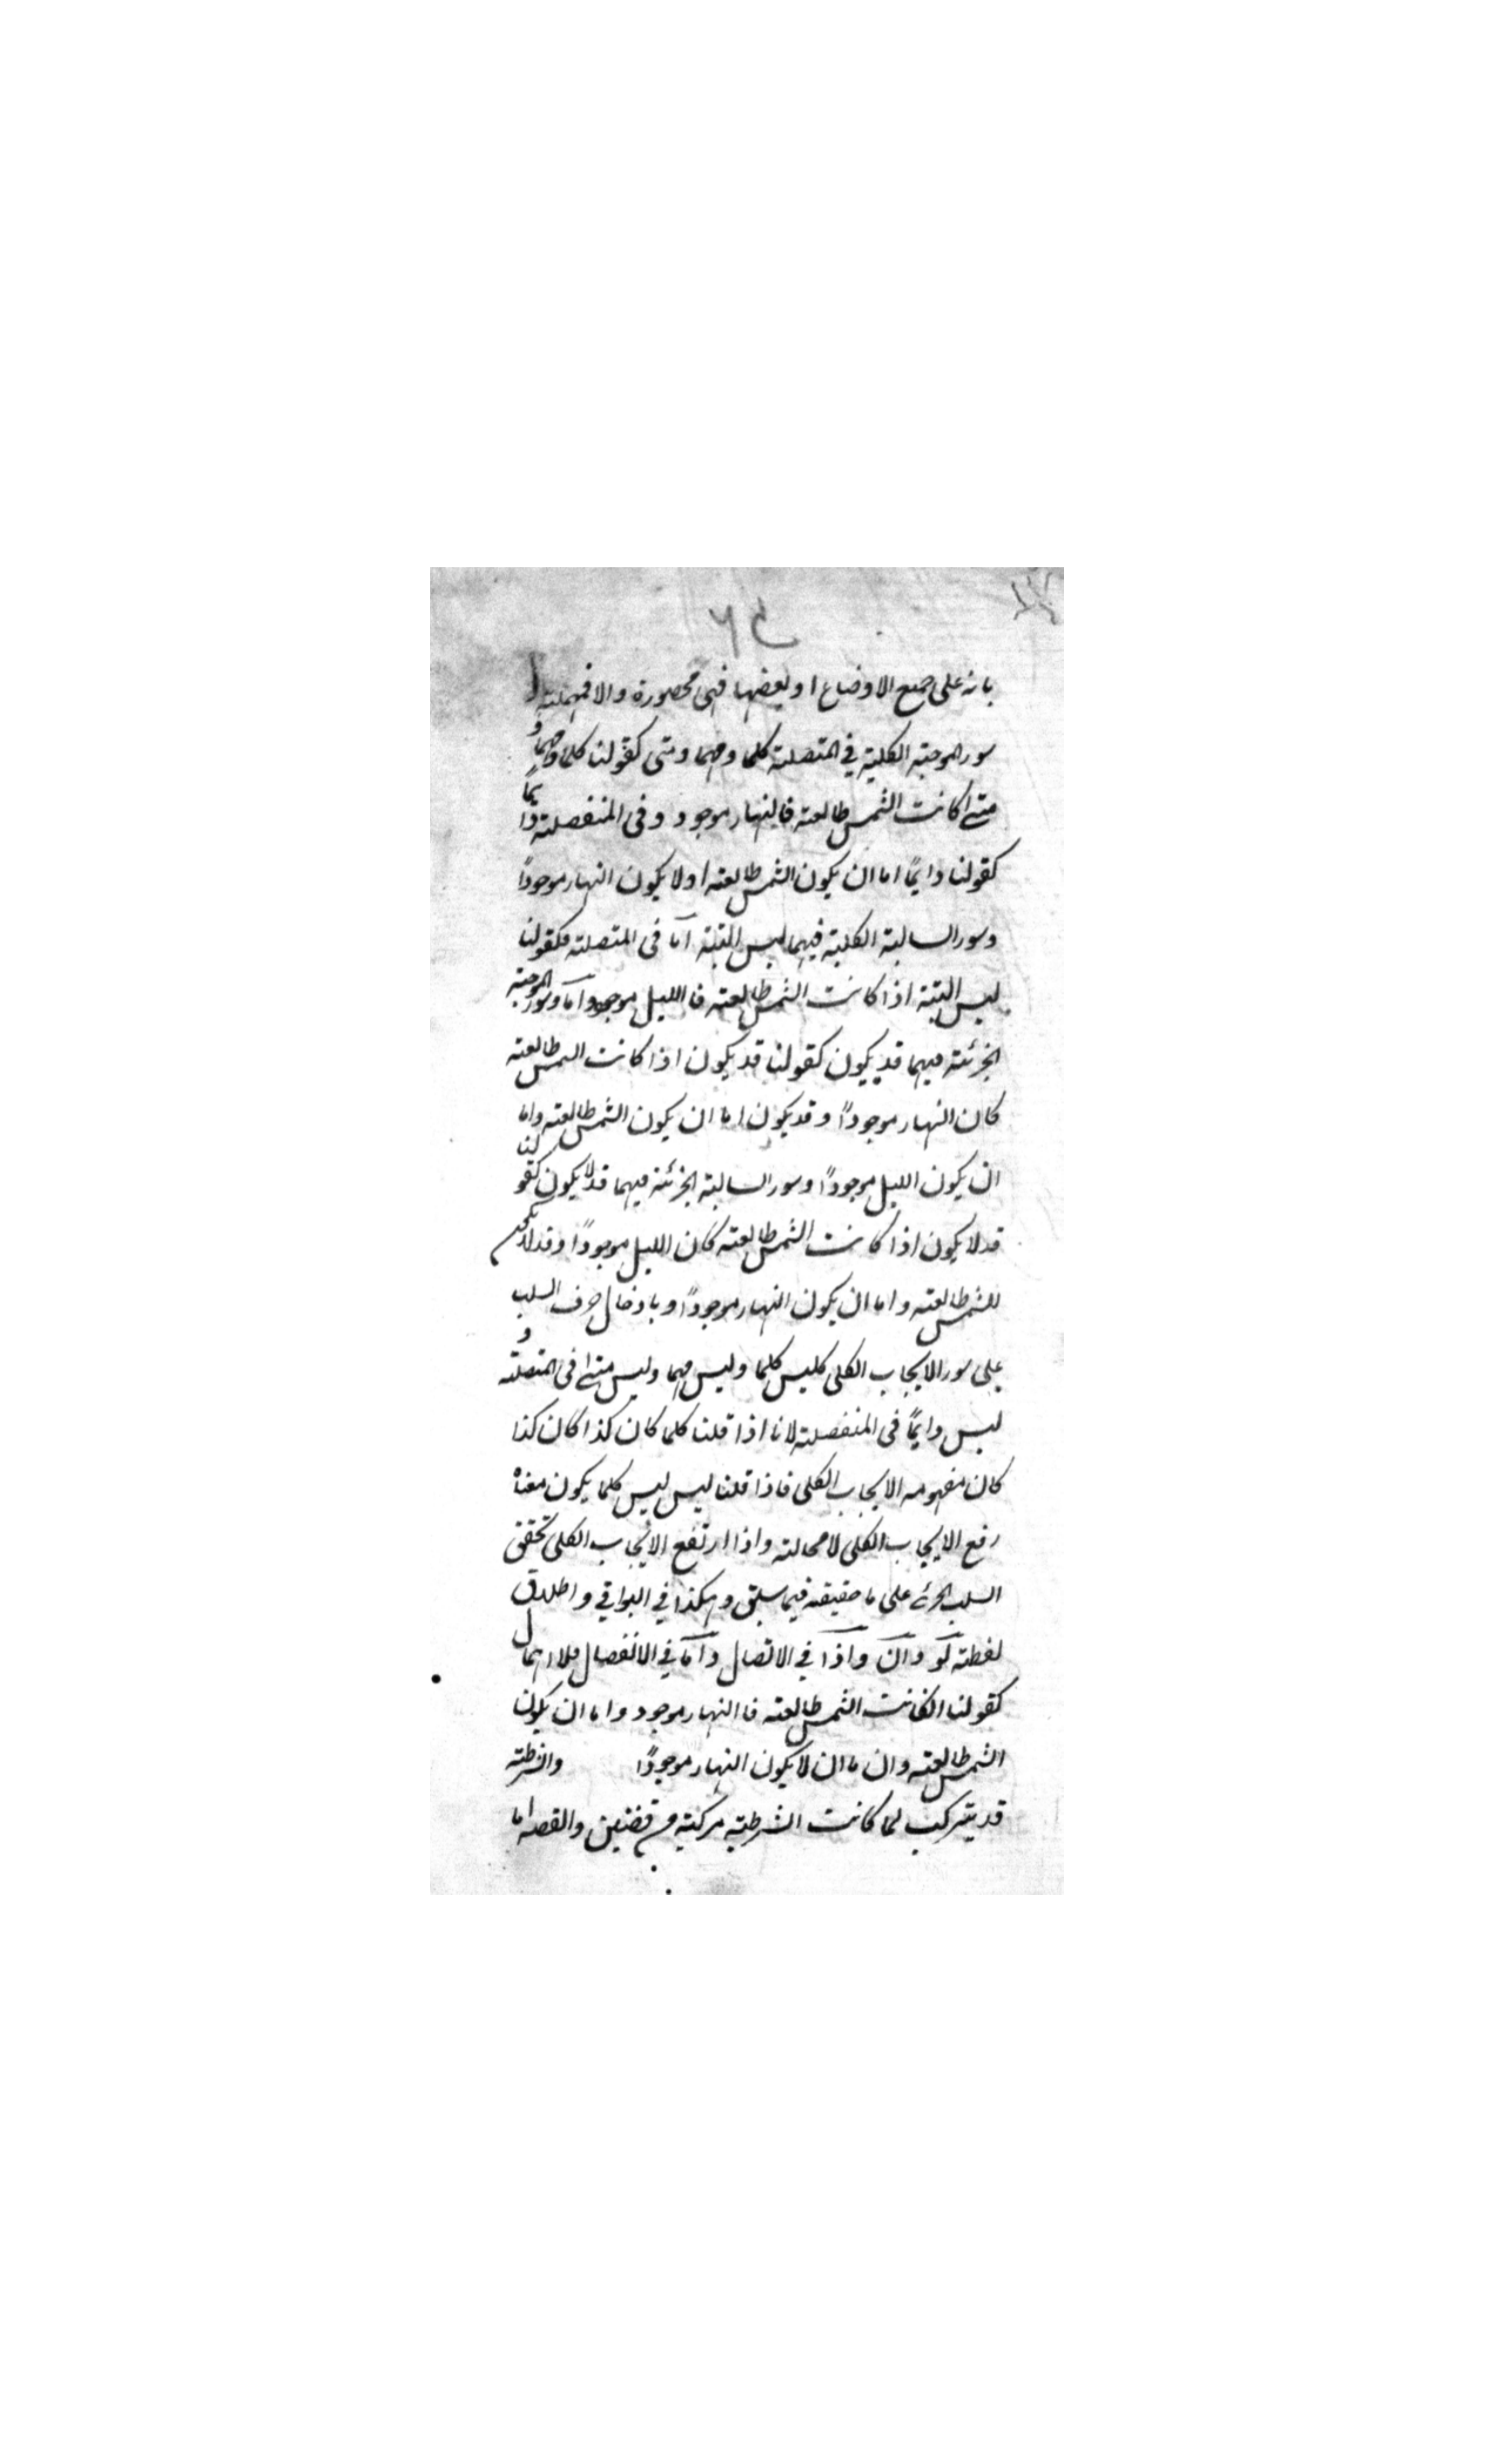 بانه على جميع الاوضاع او بعضها فهى محصورة والا فمهملة
سور الموجبة الكلية في المتصلة كلما ومهما ومتى كقولنا كلما ومهما و
متى كانت الشمس طالعة فالنهار موجود وفي المنفصلة دايمًا
كقولنا دايمًا اما ان يكون الشمس طالعة او لا يكون النهار موجودًا
وسور السالبة الكلية فيهما ليس البتة اما في المتصلة فكقولنا
ليس البتة اذا كانت الشمس طالعة فالليل موجود واما وسور الموجبة
الجزئية فيهما قد يكون كقولنا قد يكون اذا كانت الشمس طالعة
كان النهار موجودًا وقد يكون اما ان يكون الشمس طالعة واما
ان يكون الليل موجودًا وسور السالبة الجزئية فيهما قد لا يكون كقولنا
قد لا يكون اذا كانت الشمس طالعة كان الليل موجودًا وقد لا يكون
الشمس طالعة واما ان يكون النهار موجودًا وبادخال حرف السلب
على سور الايجاب الكلى كليس كلما وليس مهما وليس متى في المتصلة و
ليس دايمًا في المنفصلة لانا اذا قلنا كلما كان كذا كان كذا
كان مفهومه الايجاب الكلى فاذا قلنا ليس ليس كلما يكون معناه
رفع الايجاب الكلى لا محالة واذا ارتفع الايجاب الكلى تحقق
السلب الجزئى على ما حقيقه فيما سبق وهكذا في البواقي واطلاق
لفظة لو وان واذا في الاتصال واما في الانفصال فلا اهمال
كقولنا انكانت الشمس طالعة فا النهار موجود واما ان يكون
الشمس طالعة وان ما ان لا يكون النهار موجودًا والشرطية
قد يتركب لما كانت الشرطية مركبة من قضيتين والقضية اما